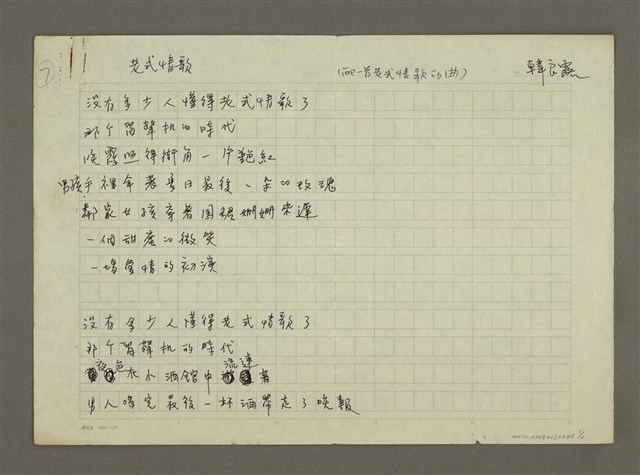 老式情歌
(配一首老式情歌的曲)
韓良露
沒有多少人懂得老式情歌了
那个留聲机的時代
晚霞照得街角一片艷紅
男孩手裡拿著是日最後一朵的玫瑰
鄰家女孩穿著圓裙姍姍來遲
一個甜蜜的微笑
一場愛情的初演
沒有多少人懂得老式情歌了
那个留聲机的時代
夜色在小酒館中流連著
男人喝完最後一杯酒帶走了晚報